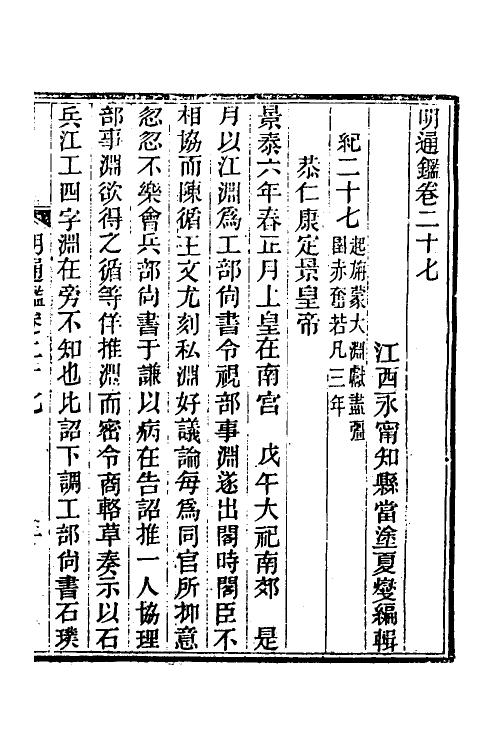 明通鑑卷二十七
江西永甯知縣當塗夏燮編輯
紀二十七起旃蒙大淵獻盡彊
圉赤奮若凡三年
恭仁康定景皇帝
景泰六年春正月上皇在南宮　戊午大祀南郊　是
月以江淵爲工部尙書令視部事淵遂出閣時閣臣不
相協而陳循王文尤刻私淵好議論每爲同官所抑意
忽忽不樂會兵部尙書于謙以病在告詔推一人協理
部事淵欲得之循等佯推淵而密令商輅草奏示以石
兵江工四字淵在旁不知也比詔下調工部尙書石璞
明通鑑卷二十七